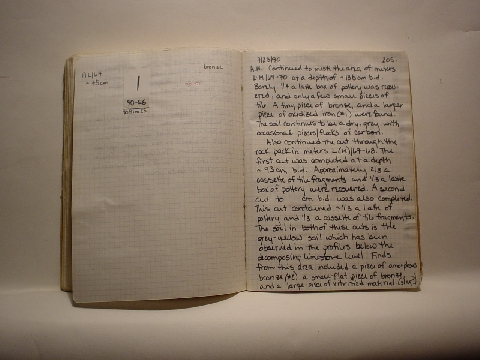 bronze
90-56
205
A.M. Continued to work the area of meters
at a depth of ~ 135cm b.d.
Barely 1/4 a late box of pottery was recov-
ered, and only a few small pieces of
tile. A tiny piece of bronze, and a larger
piece of oxidised iron were found.
The soil continues to be a dry, grey, with
occasional pieces/flecks of carbon.
Also continued the cut through the
rock pack in meters 67-68. The
first cut was conducted at a depth
b.d. Approximately
cassette of tile fragments and 1/3 a latte
box of pottery were recovered. A second
cut to cm b.d. was also completed.
This cut contained 1/3 a latte of
pottery and 1/3 a cassette of tile fragments.
The soil in both of these cuts is the
grey-yellow soil which has been
observed in the profiles below the
decomposing limestone level. Finds
from this area included a piece of amorphous
bronze a small flat piece of bronze,
and a large piece of vitrified material (slag)